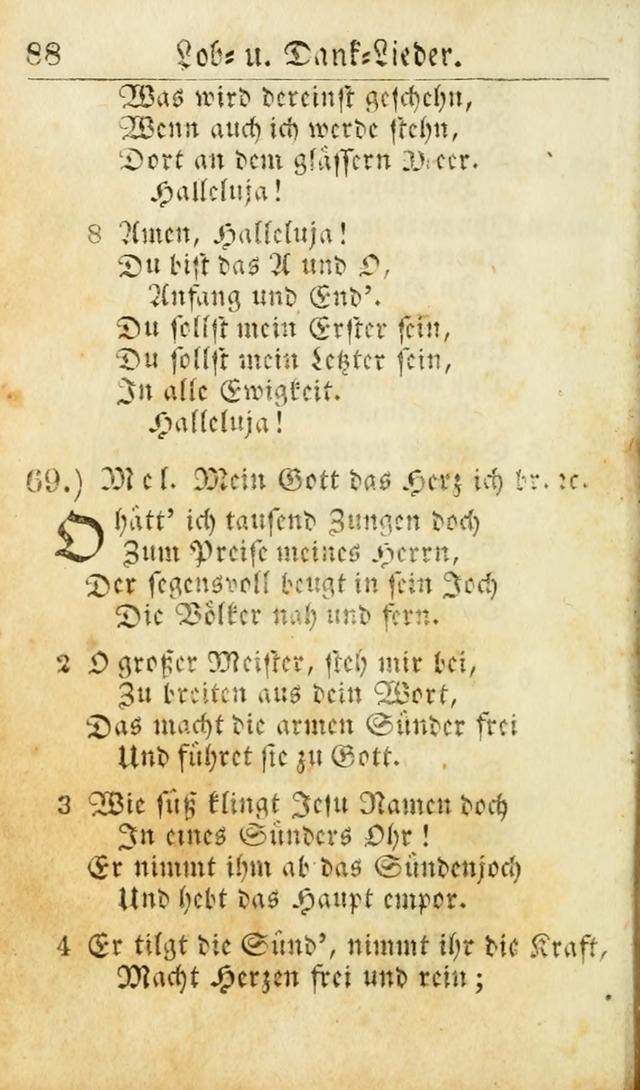 88 Lob⸗ u. Dank⸗Lieder.
Was wird dereinst geschehn,
Wenn auch ich werde stehn,
Dort an dem glässern Meer.
Halleluja!
8 Amen, Halleluja!
Du bist das A und O,
Anfang und End’.
Du sollst mein Erster sein,
Du sollst mein Letzter sein,
In alle Ewigkeit.
Halleluja!
69.) Mel. Mein Gott das Herz ich br. ꝛc.
O hätt’ ich tausend Zungen doch
Zum Preise meines Herrn,
Der segensvoll beugt in sein Joch
Die Völker nah und fern.
2 O großer Meister, steh mir bei,
Zu breiten aus dein Wort,
Das macht die armen Sünder frei
Und führet sie zu Gott.
3 Wie süß klingt Jesu Namen doch
In eines Sünders Ohr!
Er nimmt ihm ab das Sündenjoch
Und hebt das Haupt empor.
4 Er tilgt die Sünd’, nimmt ihr die Kraft,
Macht Herzen frei und rein;